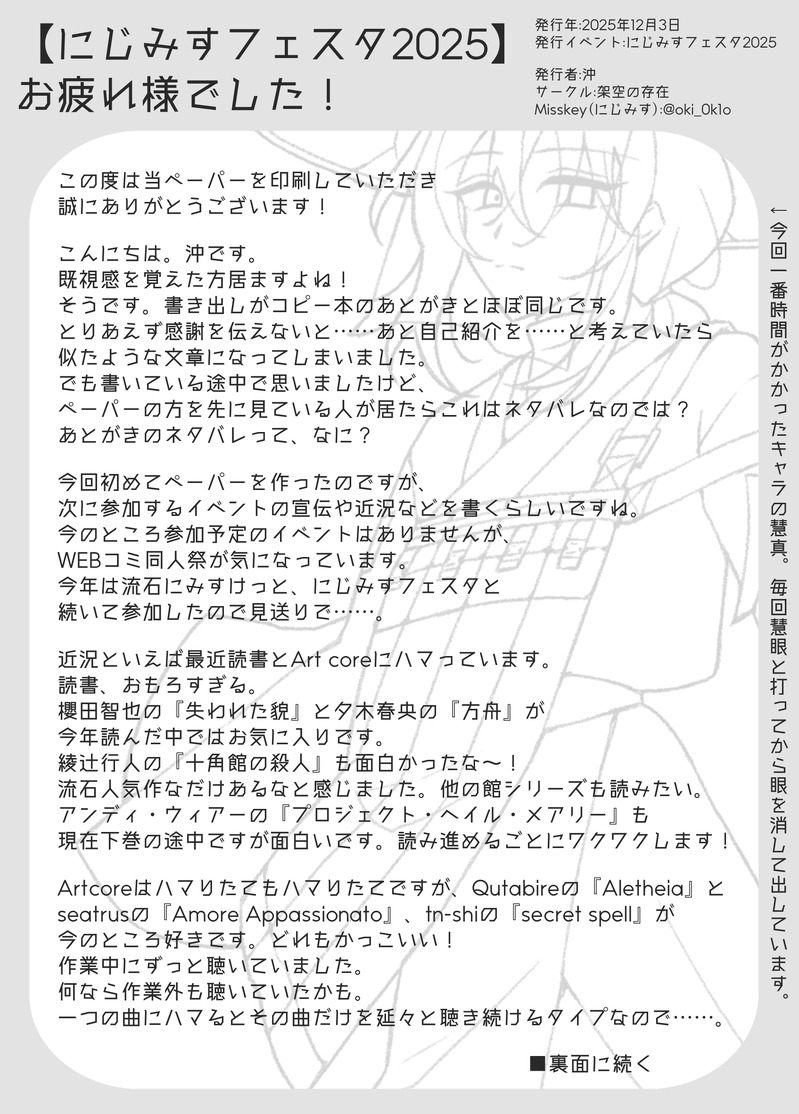 【にじみすフェスタ2025】
お疲れ様でした！
発行年:2025年12月3日
発行イベント:にじみすフェスタ2025
発行者:沖
サークル:架空の存在
Misskey(にじみす):@oki_0k1o
この度は当ペーパーを印刷していただき
誠にありがとうございます！
こんにちは。沖です。
既視感を覚えた方居ますよね！
そうです。書き出しがコピー本のあとがきとほぼ同じです。
とりあえず感謝を伝えないと……あと自己紹介を……と考えていたら
似たような文章になってしまいました。
でも書いている途中で思いましたけど、
ペーパーの方を先に見ている人が居たらこれはネタバレなのでは？
あとがきのネタバレって、なに？
今回初めてペーパーを作ったのですが、
次に参加するイベントの宣伝や近況などを書くらしいですね。
今のところ参加予定のイベントはありませんが、
WEBコミ同人祭が気になっています。
今年は流石にみすけっと、にじみすフェスタと
続いて参加したので見送りで……。
近況といえば最近読書とArt coreにハマっています。
読書、おもろすぎる。
櫻田智也の『失われた貌』と夕木春央の『方舟』が
今年読んだ中ではお気に入りです。
綾辻行人の『十角館の殺人』も面白かったな〜！
流石人気作なだけあるなと感じました。他の館シリーズも読みたい。
アンディ・ウィアーの『プロジェクト・ヘイル・メアリー』も
現在下巻の途中ですが面白いです。読み進めるごとにワクワクします！
Artcoreはハマりたてもハマりたてですが、Qutabireの『Aletheia』と
seatrusの『Amore Appassionato』、tn-shiの『secret spell』が
今のところ好きです。どれもかっこいい！
作業中にずっと聴いていました。
何なら作業外も聴いていたかも。
一つの曲にハマるとその曲だけを延々と聴き続けるタイプなので……。
■裏面に続く
←今回一番時間がかかったキャラの慧真。毎回慧眼と打ってから眼を消して出しています。